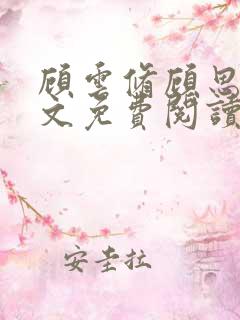 顧雲脩顧思
文免費閱讀
安圭拉